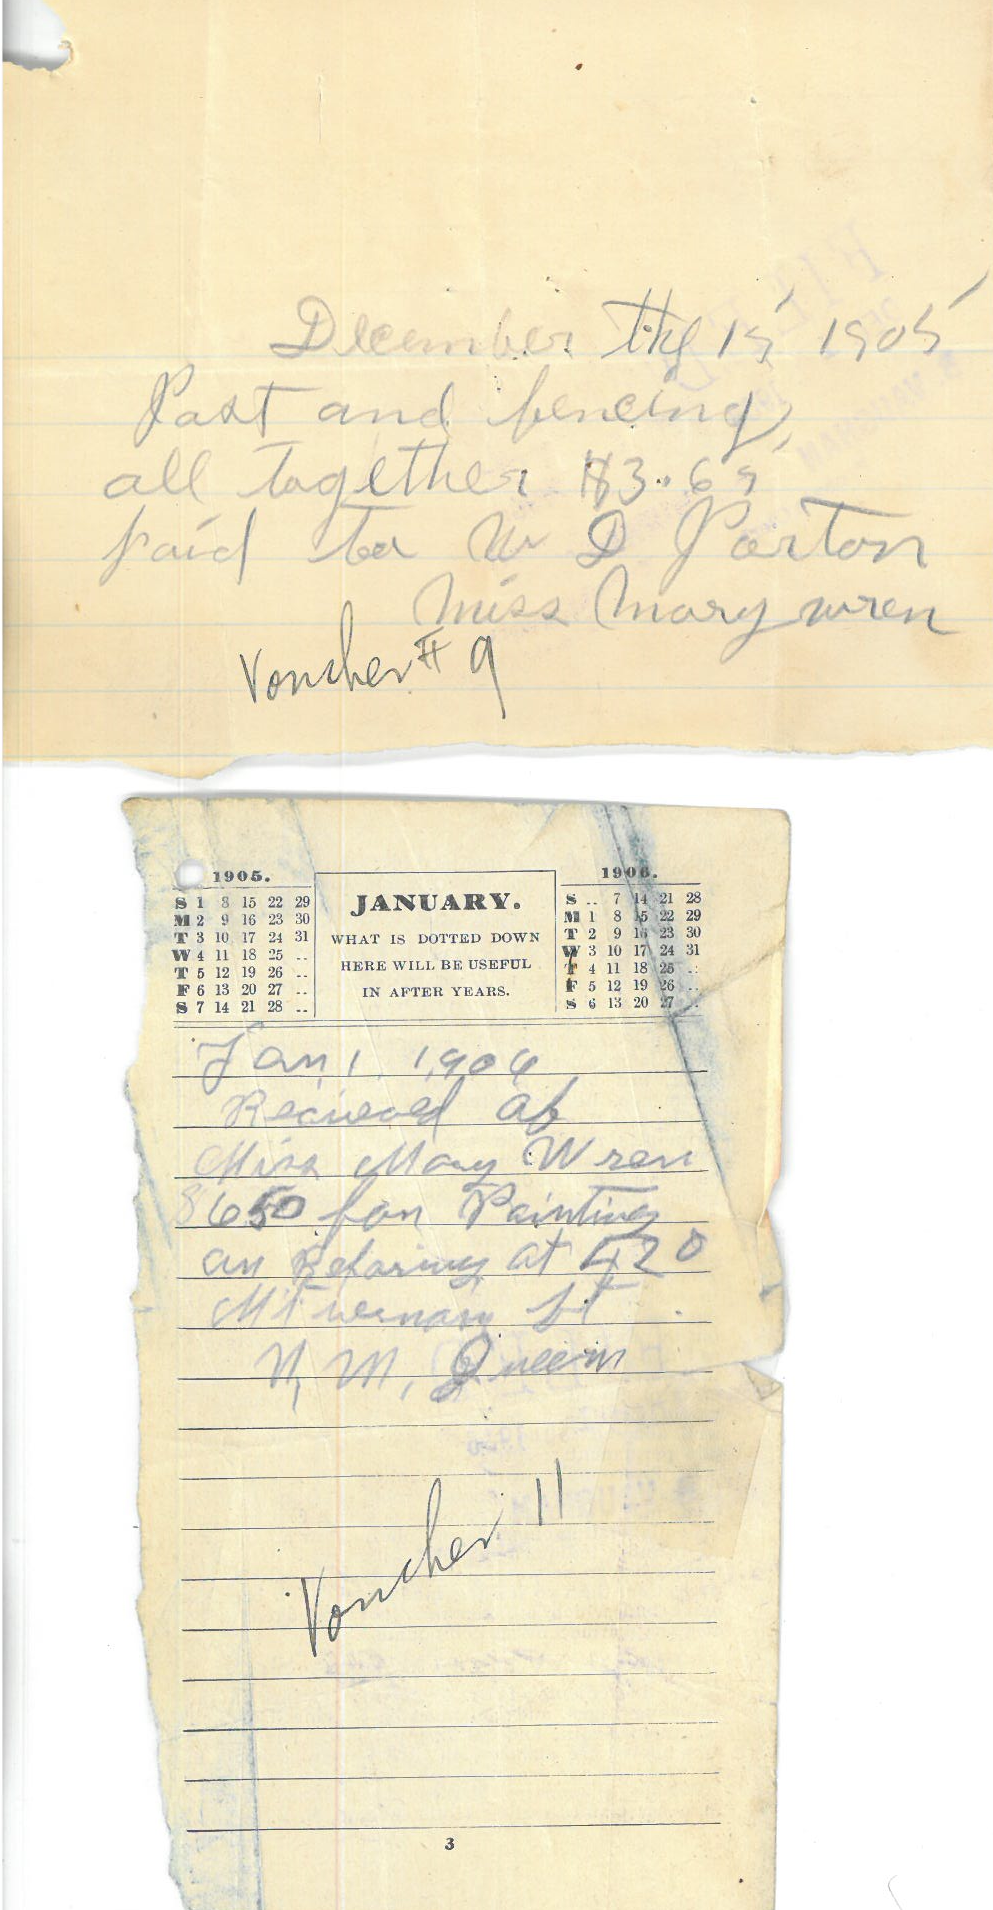 December the 15 1905
Post and fencing
all together $3.65
paid to W D Parton
Miss Mary wren
Voucher # 9
1905.
S 1 8 15 22 29
M 2 9 16 23 30
T 3 10 17 24 31
W 4 11 18 25 ..
T 5 12 19 26 ..
F 6 13 20 27 ..
S 7 14 21 28 ..
JANUARY.
WHAT IS DOTTED DOWN
HERE WILL BE USEFUL
IN AFTER YEARS.
1906.
S .. 7 14 21 28
M 1 8 15 22 29
T 2 9 16 23 30
W 3 10 17 24 31
T 4 11 18 25 ..
F 5 12 19 26 ..
S 6 13 20 27 ..
Jan, 1, 1906
Recieved of
Miss Mary Wren
$650 for Painting
an Reparing at 420
Mt vernon St
M,
Voucher 11
3